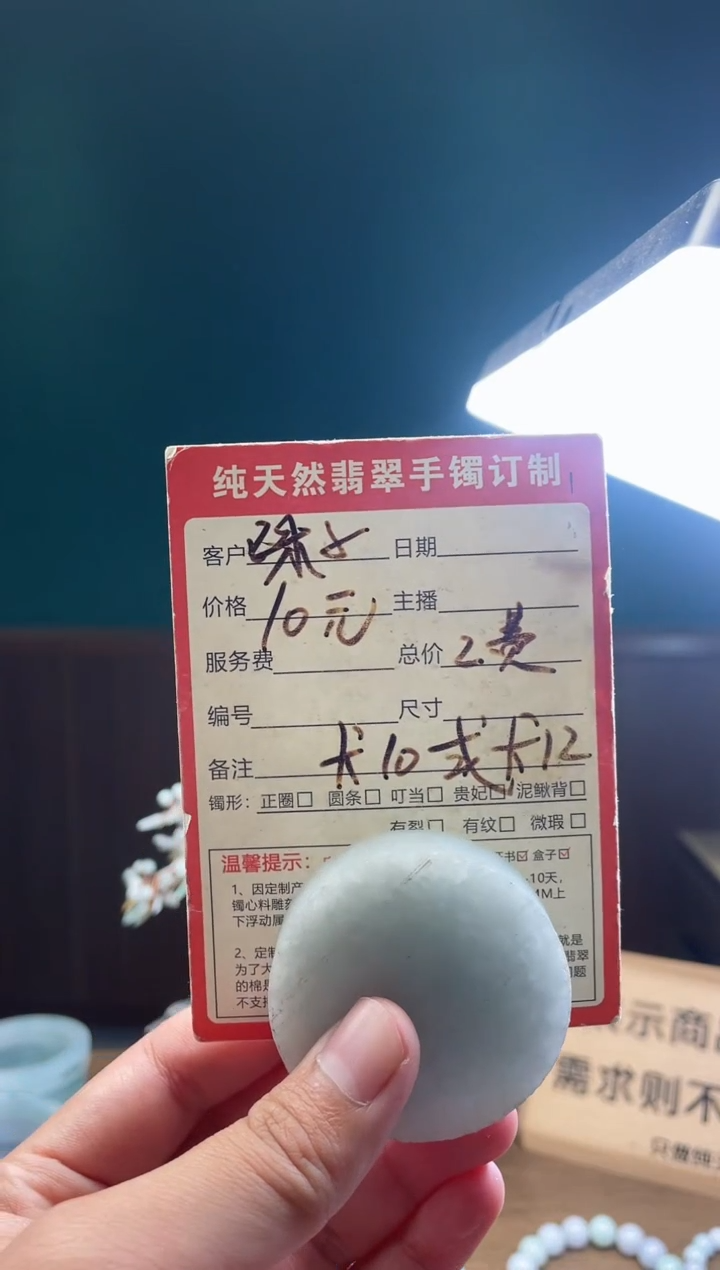 纯天然翡翠手镯订制
客户 珠子 日期
价格 10元 主播
服务费 总价 工费
编号 尺寸
备注 卡10或卡12
镯形：正圈□ 圆条□ 叮当□ 贵妃□ 泥鳅背□
有裂□ 有纹□ 微瑕□
温馨提示： 证书☑ 盒子☑
1、因定制产 10天，
镯心料雕刻 MM上
下浮动属
2、定制 就是
为了大 翡翠
的棉 问题
不支持
示商品
需求则不